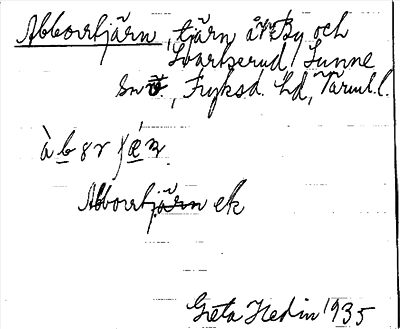 Abborrtjärn, tjärn å By och
Svartserud, Sunne
sn, Fryksd. hd, Värml. l.
àbɞrʃǽn
Abborrtjärn ek
Greta Hedin 1935